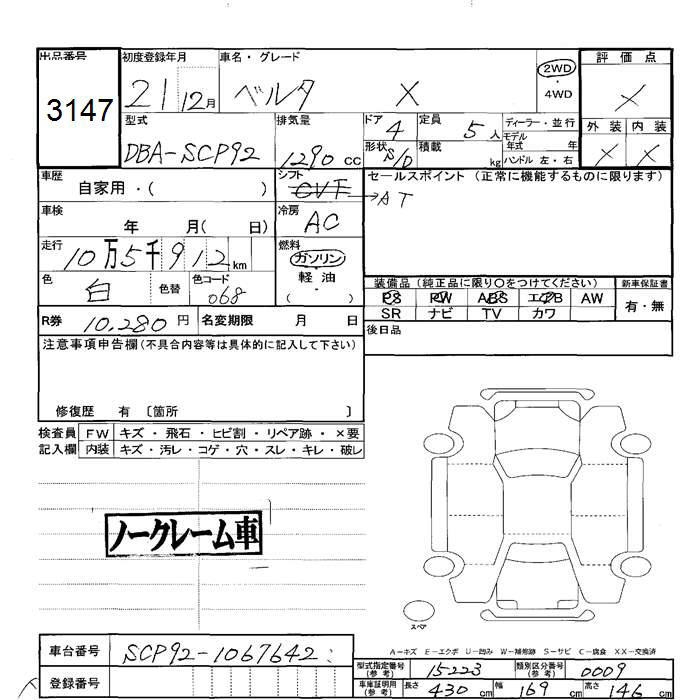 出品番号 初度登録年月 車名・グレード 評価点
3147 21 12月 ベルタ X 2WD ・ 4WD X
型式 排気量 ドア 4 定員 5人 ディーラー・並行 外装 内装
DBA-SCP92 1290cc 形状 S/D 積載 kg モデル年式 年 ハンドル 左・右 X X
車歴 自家用・( ) シフト CVT→AT セールスポイント (正常に機能するものに限ります)
車検 年 月( 日) 冷房 AC
走行 10万5千912km 燃料 ガソリン ・ 軽油 ・ ( )
色 白 色替 色コード 068
装備品 (純正品に限り○をつけてください) 新車保証書
PS PW ABS エアB AW 有・無
SR ナビ TV カワ
R券 10,280円 名変期限 月 日 後日品
注意事項申告欄(不具合内容等は具体的に記入して下さい)
修復歴 有 〔箇所 〕
検査員 FW キズ・飛石・ヒビ割・リペア跡・×要
記入欄 内装 キズ・汚レ・コゲ・穴・スレ・キレ・破レ
ノークレーム車
スペア
A-キズ E-エクボ U-凹み W-補修跡 S-サビ C-腐食 XX-交換済
車台番号 SCP92-1067642
登録番号
型式指定番号(参考) 15223 類別区分番号(参考) 0009
車庫証明用(参考) 長さ 430cm 幅 169cm 高さ 146cm